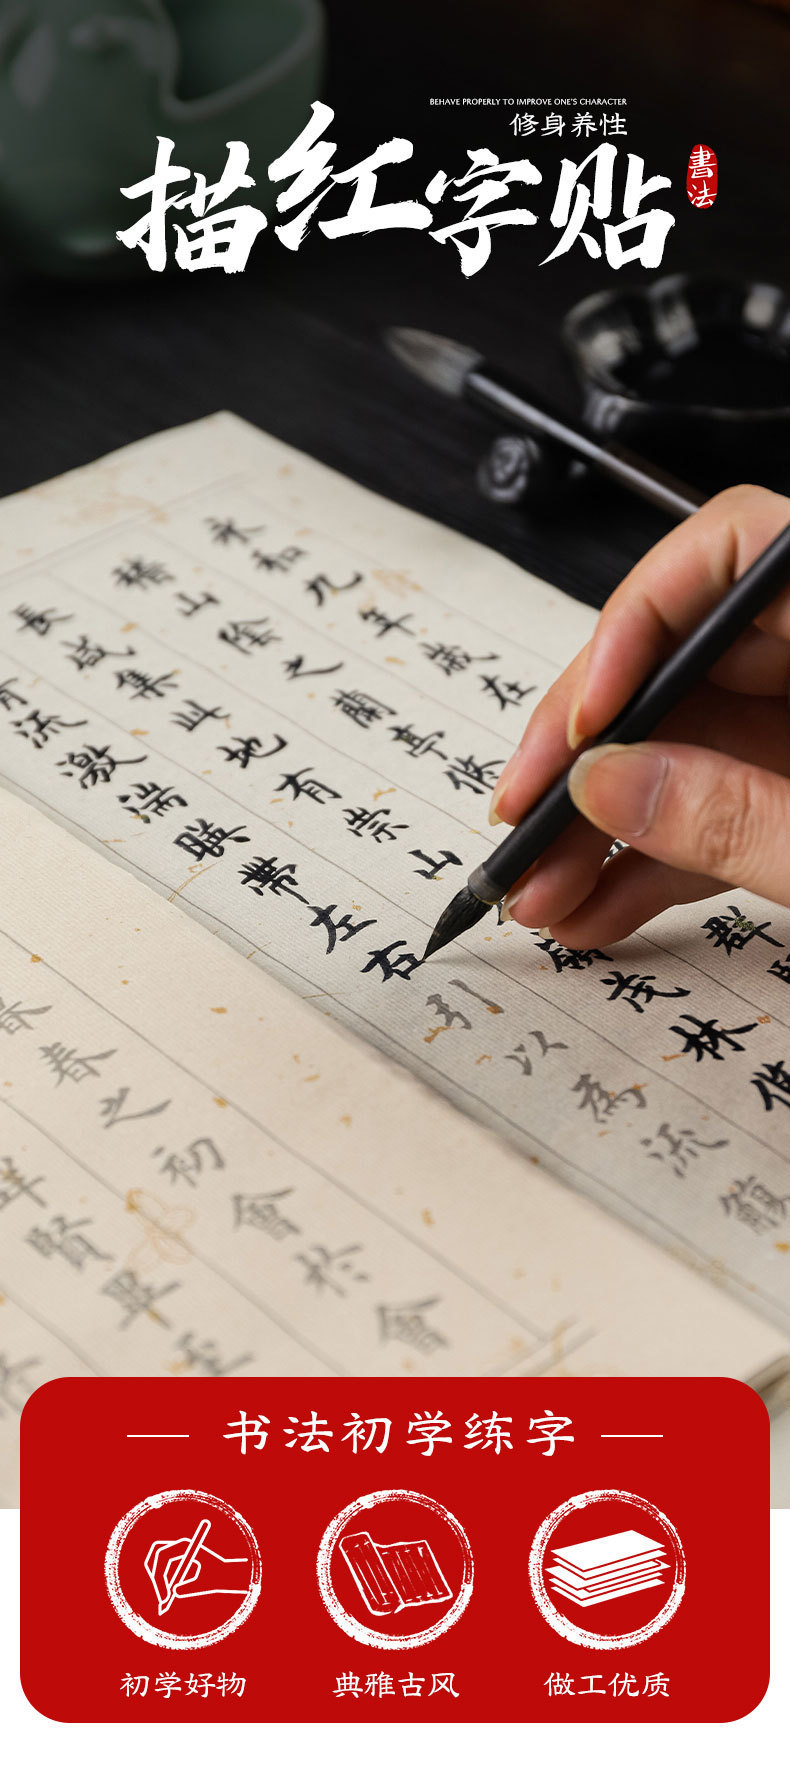 BEHAVE PROPERLY TO IMPROVE ONE'S CHARACTER
修身养性
描红字贴
書法
永和九年歲在
稽山陰之蘭亭脩
群
長咸集此地有崇山
茂林脩
流激湍暎帶左右引以為流觴
暮春之初會於會
賢畢至
书法初学练字
初学好物
典雅古风
做工优质